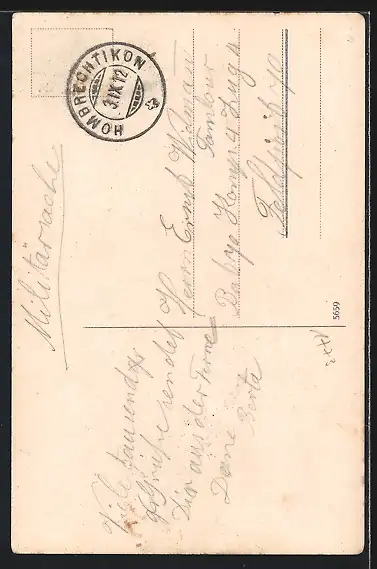 HOMBRECHTIKON
3.IX.12
Militärsache
Herrn Ernst Widmann
Tambour
Komp. 4 Zug 4
Feldpost 70
Viele tausend
Grüsse sendet
Dir aus der Ferne
Berta
5659